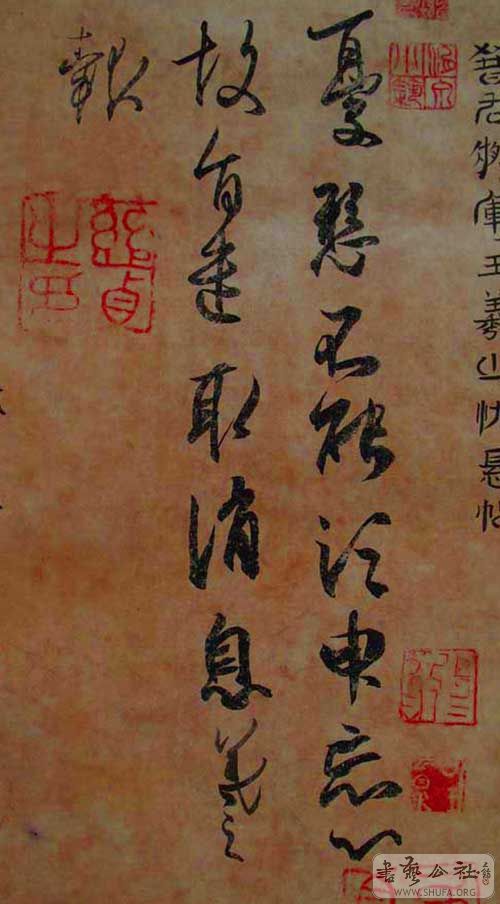 晉右將軍王羲之忧悬帖
憂懸不能須臾忘心
故旨遣取消息羲之
報
書藝公社
WWW.SHUFA.ORG